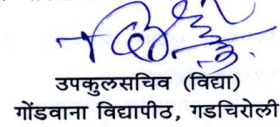 उपकुलसचिव (विद्या)
गोंडवाना विद्यापीठ, गडचिरोली